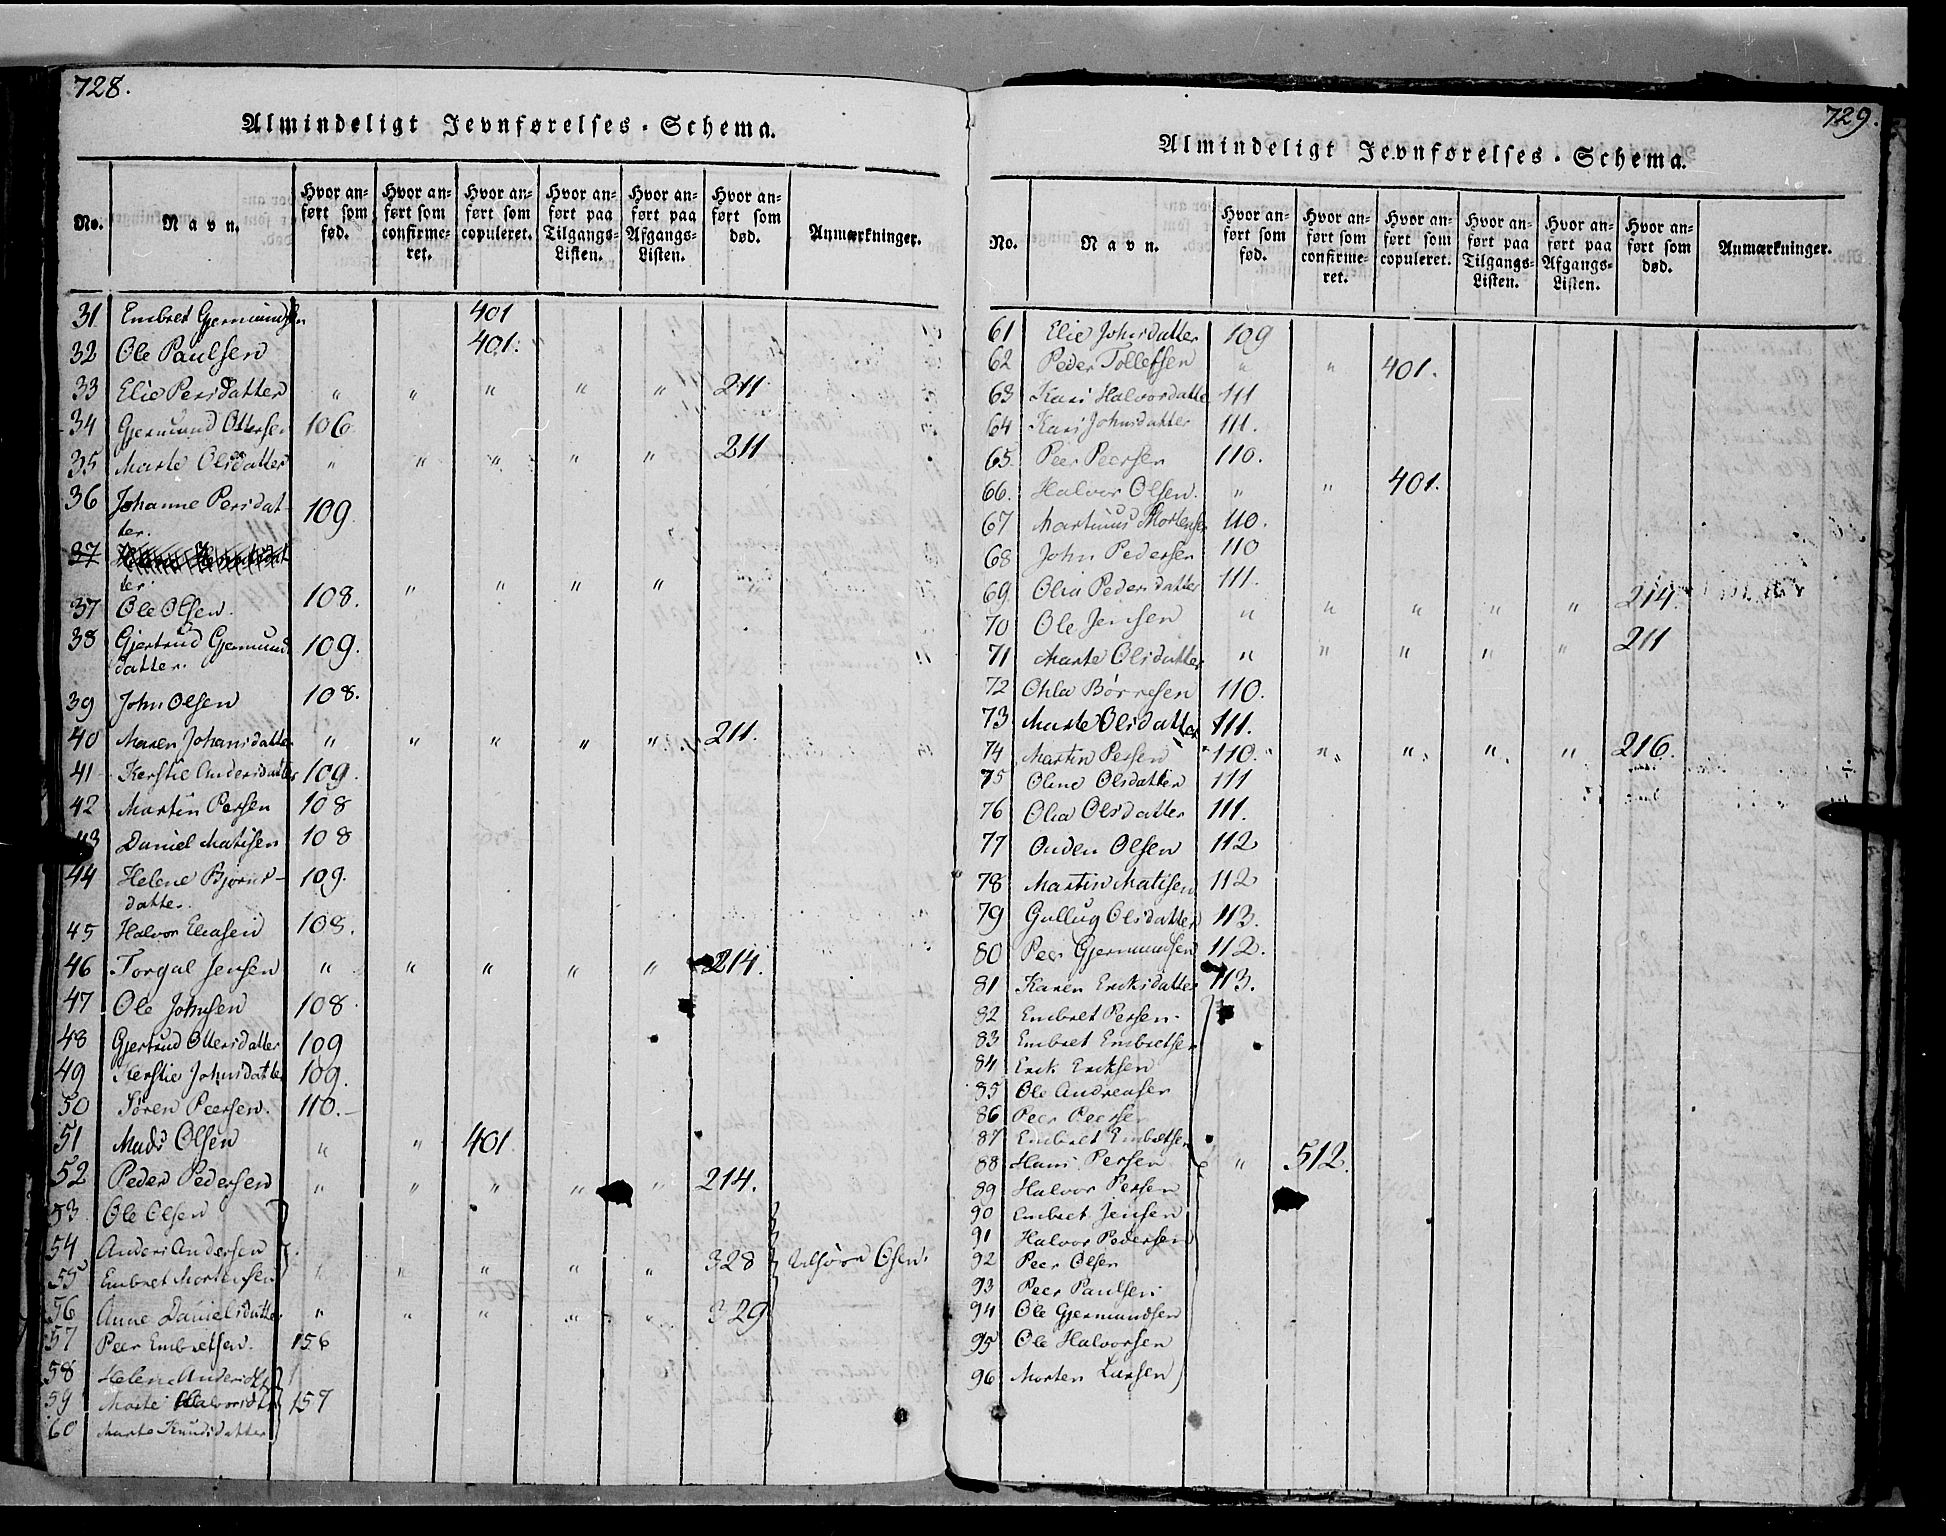 728.
Almindeligt Jevnførelses-Schema.
No. Navn. Hvor anført som fød. Hvor anført som confirmeret. Hvor anført som copuleret. Hvor anført paa Tilgangs-Listen. Hvor anført paa Afgangs-Listen. Hvor anført som død. Anmærkninger.
31 Embret Gjermundsen 401
32 Ole Paulsen 401.
33 Elie Persdatter " " " " " 211
34 Gjermund Ottersen 106
35 Marte Olsdatter " " " " " 211
36 Johanne Persdat- 109
ter.
37
ter. " " " "
37 Ole Olsen. 108.
38 Gjertrud Gjermunds 109.
datter.
39 John Olsen 108.
40 Maren Johansdatter " " " " " 211.
41 Kerstie Andersdatter 109.
42 Martin Persen 108
43 Daniel Matisen 108
44 Helene Bjørns- 109.
datter
45 Halvor Eliasen 108.
46 Torgal Jensen " " " " " 214.
47 Ole Johnsen 108
48 Gjertrud Ottersdatter 109
49 Kerstie Johnsdatter 109.
50 Søren Peersen. 110.
51 Mads Olsen " " 401
52 Peder Pedersen " " " " " 214.
53 Ole Olsen
54 Anders Andersen
55 Embret Mortensen " " " " " 328
56 Anne Danielsdatter " " " " " 329
57 Peer Embretsen. 156
58 Helene Andersdtr
59 Marte Halvorsdtr 157
60 Marte Knudsdatter
729.
Almindeligt Jevnførelses-Schema.
No. Navn. Hvor anført som fød. Hvor anført som confirmeret. Hvor anført som copuleret. Hvor anført paa Tilgangs-Listen. Hvor anført paa Afgangs-Listen. Hvor anført som død. Anmærkninger.
61 Elie Johnsdatter 109
62 Peder Tollefsen " " 401.
63 Kari Halvordatte 111
64 Kari Johnsdatter 111.
65. Peer Peersen 110.
66. Halvor Olsen. " " 401.
67 Martinus Mortensen 110.
68 John Pedersen 110
69 Olia Pedersdatter 111.
70 Ole Jensen " " " " " 214
71 Marte Olsdatter " " " " " 211
72 Ohla Børresen 110.
73 Marte Olsdatter 111.
74 Martin Persen 110. " " " " 216.
75 Oline Olsdatter 111
76 Olia Olsdatter 111.
77 Ouden Olsen 112
78 Martin Matisen 112
79 Gullug Olsdatter 113.
80 Peer Gjermundsen 112.
81 Karen Eriksdatter 113.
82 Embret Persen.
83 Embret Embretsen
84 Erik Eriksen
85 Ole Andreasen
86 Peer Peersen
87 Embret Embretsen
88 Hans Persen " 512.
89 Halvor Persen
90 Embret Jensen
91 Halvor Pedersen
92 Peer Olsen
93 Peer Paulsen
94 Ole Gjermundsen
95 Ole Halvorsen
96 Morten Larsen